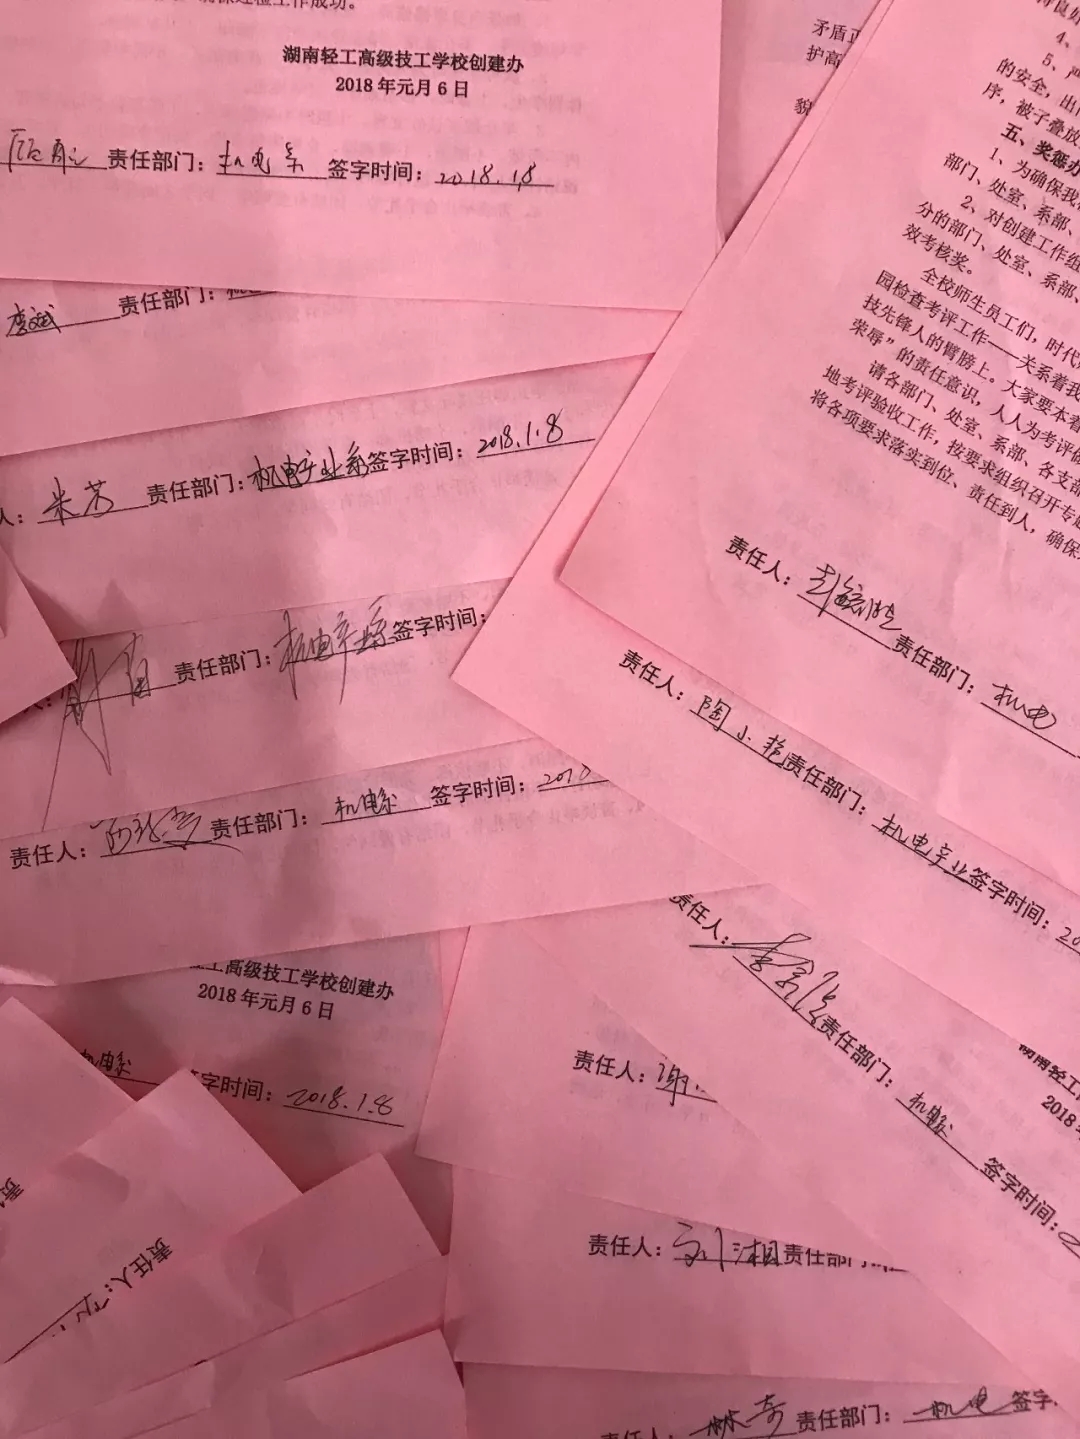 确保迎检工作成功。
湖南轻工高级技工学校创建办
2018年元月6日
责任部门：机电系 签字时间：2018.1.8
责任部门：机电
人：米芳 责任部门：机电产业系 签字时间：2018.1.8
责任部门：机电产业系 签字时间：
责任人： 责任部门：机电系 签字时间：201
工高级技工学校创建办
2018年元月6日
机电系 签字时间：2018.1.8
责
责任人：
矛盾
护高
4、
5、严
的安全，出
序，被子叠放
五、奖惩办
1、为确保我
部门、处室、系部、
2、对创建工作组
分的部门、处室、系部、
效考核奖。
全校师生员工们，时代
园检查考评工作——关系着我
技先锋人的臂膀上。大家要本着
荣辱”的责任意识，人人为考评
请各部门、处室、系部、各支部
地考评验收工作，按要求组织召开专
将各项要求落实到位、责任到人，确保
责任人： 责任部门：机电
责任人：陶小艳 责任部门：机电产业 签字时间：20
责任人： 责任部门：机电系 签字时间：2
湖南轻工
2018
责任人：谢
责任人：刘湘 责任部门
责任人：林奇 责任部门：机电 签字